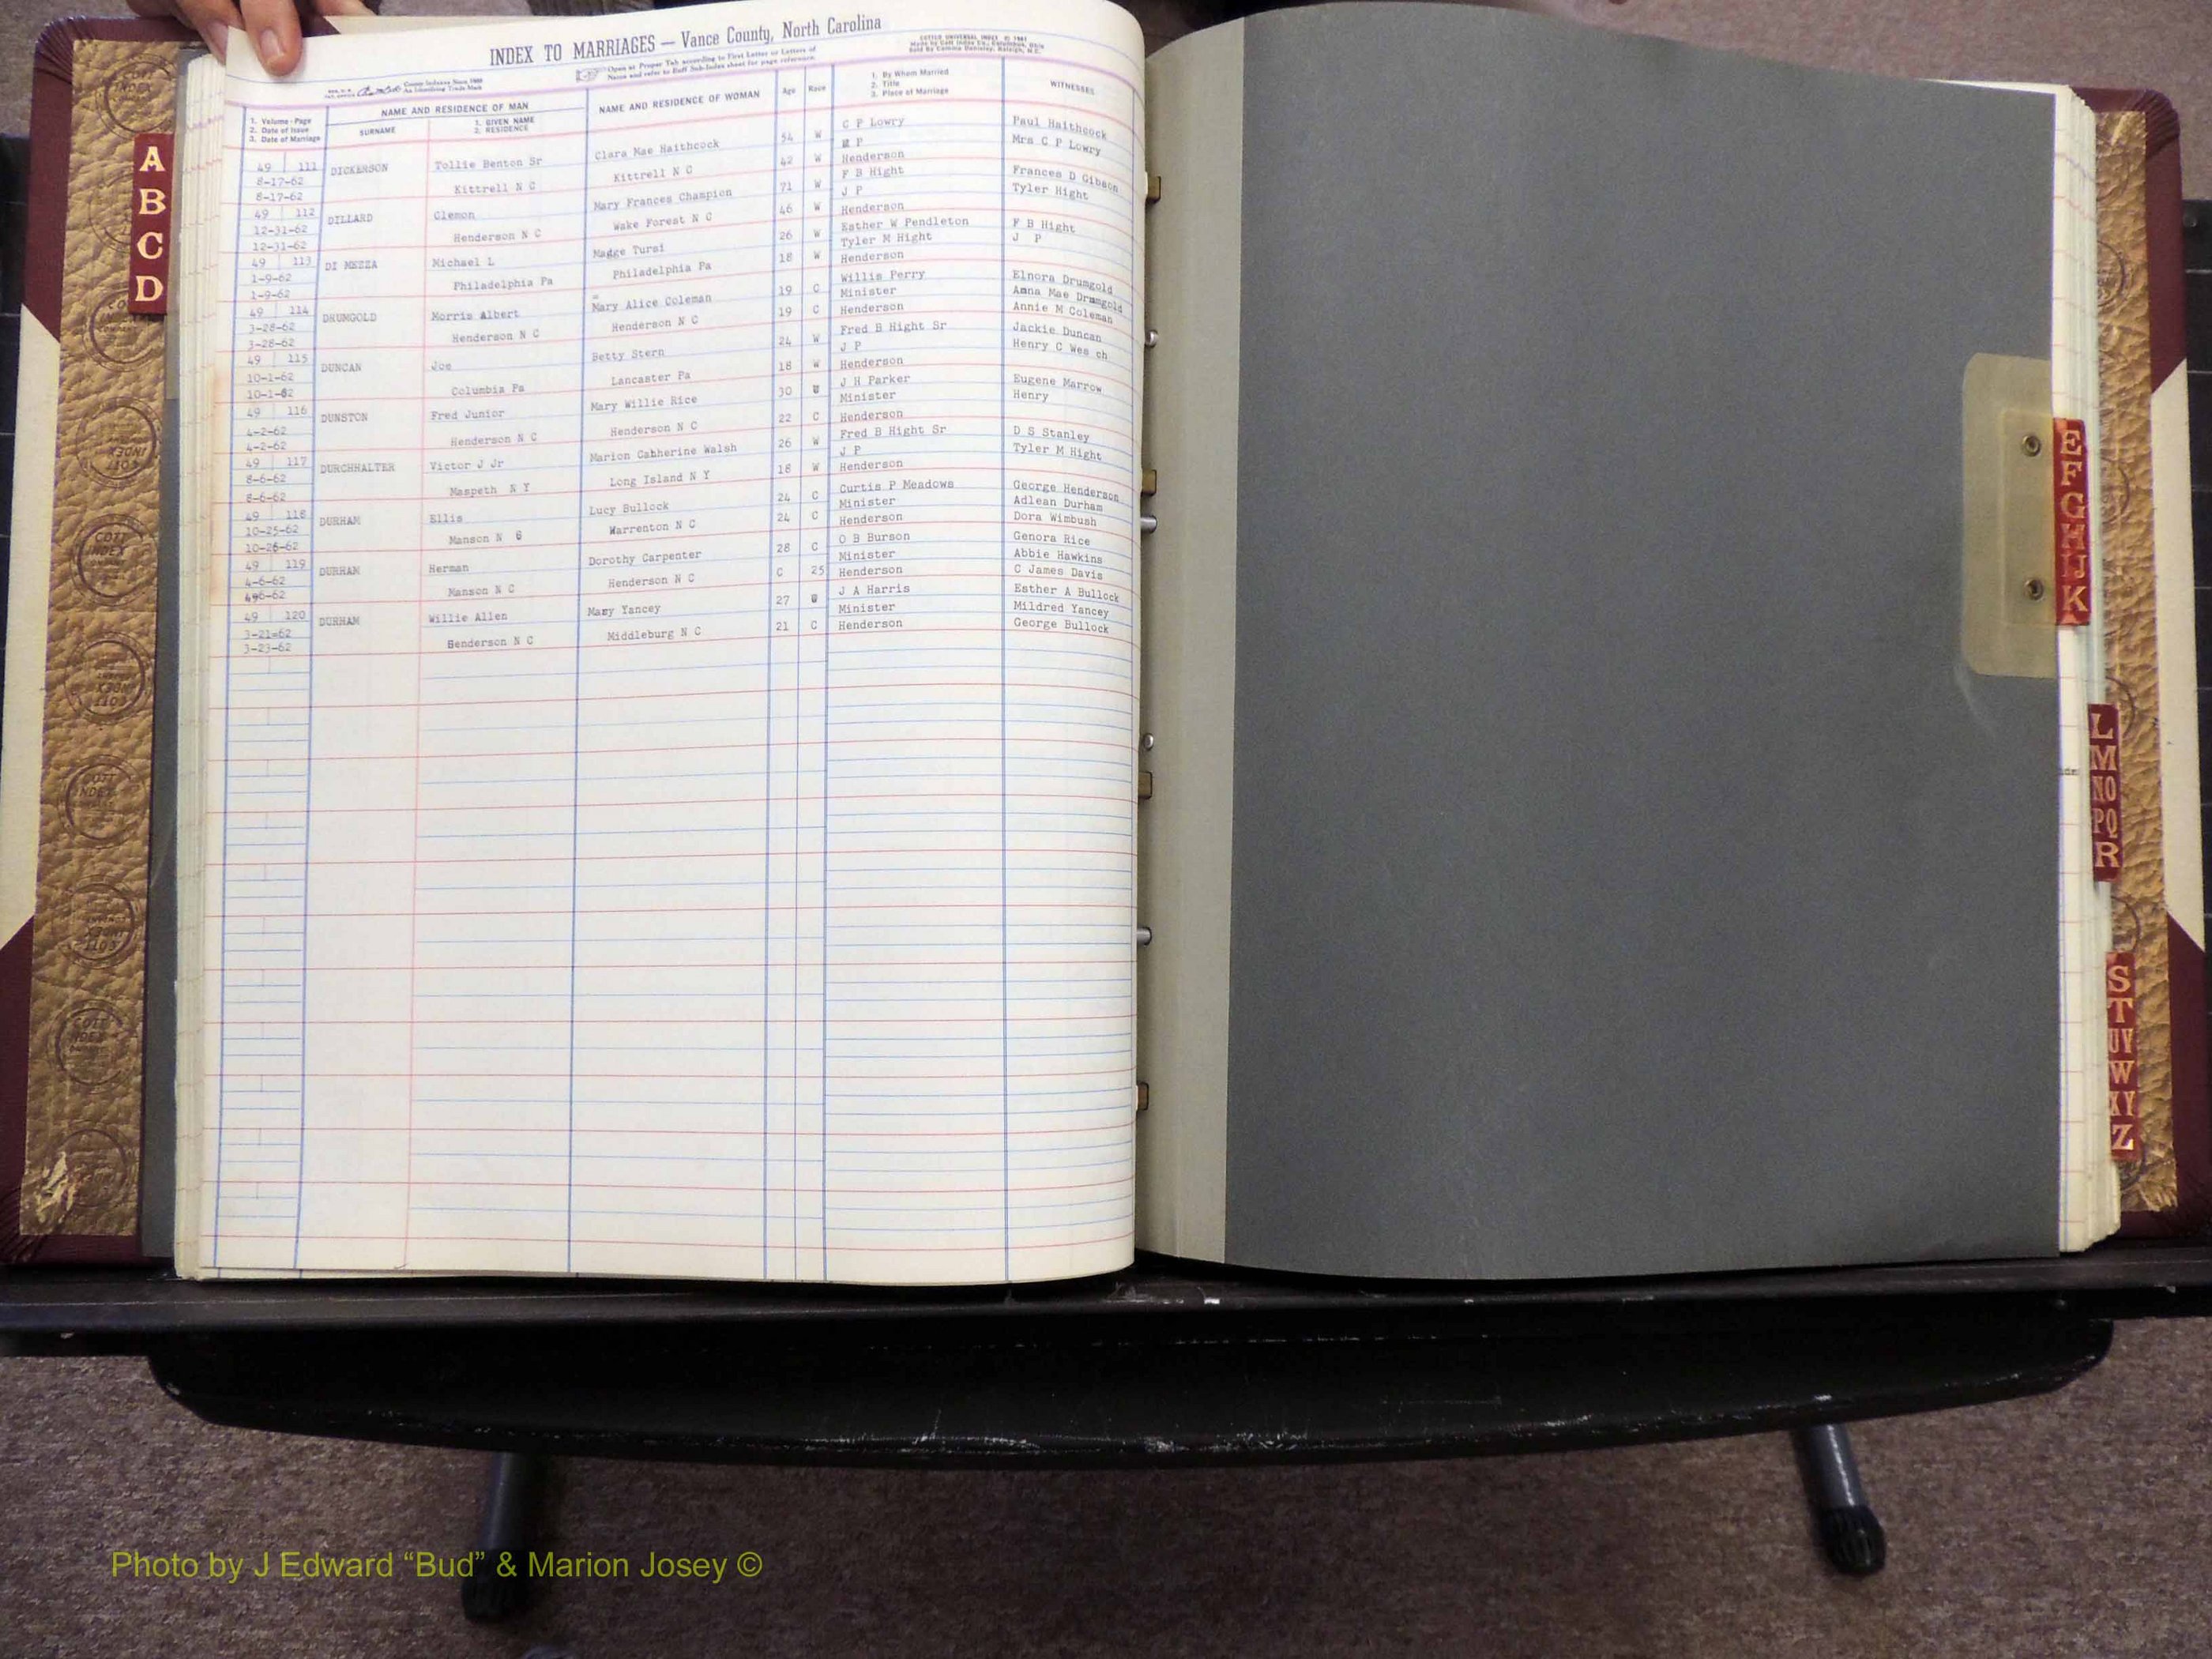 INDEX TO MARRIAGES — Vance County, North Carolina
COTT'S UNIVERSAL INDEX © 1961
Made by Cott Index Co., Columbus, Ohio
Open at Proper Tab according to First Letter or Letters of
Name and refer to Buff Sub-Index sheet for page reference.
County Indexes Since 1888
An Identifying Trade Mark
1. Volume - Page
2. Date of Issue
3. Date of Marriage
NAME AND RESIDENCE OF MAN
SURNAME
1. GIVEN NAME
2. RESIDENCE
NAME AND RESIDENCE OF WOMAN
Age
Race
1. By Whom Married
2. Title
3. Place of Marriage
WITNESSES
49 111 DICKERSON Tollie Benton Sr Clara Mae Haithcock 54 W C P Lowry Paul Haithcock
8-17-62 Kittrell N C Kittrell N C 42 W M P Mrs C P Lowry
8-17-62 Henderson
49 112 DILLARD Clemon Mary Frances Champion 71 W F B Hight Frances D Gibson
12-31-62 Henderson N C Wake Forest N C 46 W J P Tyler Hight
12-31-62 Henderson
49 113 DI MEZZA Michael L Madge Tursi 26 W Esther W Pendleton F B Hight
1-9-62 Philadelphia Pa Philadelphia Pa 18 W Tyler M Hight J P
1-9-62 Henderson
49 114 DRUMGOLD Morris Albert Mary Alice Coleman 19 C Willis Perry Elnora Drumgold
3-28-62 Henderson N C Henderson N C 19 C Minister Anna Mae Drumgold
3-28-62 Henderson Annie M Coleman
49 115 DUNCAN Joe Betty Stern 24 W Fred B Hight Sr Jackie Duncan
10-1-62 Columbia Pa Lancaster Pa 18 W J P Henry C Wes ch
10-1-62 Henderson
49 116 DUNSTON Fred Junior Mary Willie Rice 30 J H Parker Eugene Marrow
4-2-62 Henderson N C Henderson N C 22 C Minister Henry
4-2-62 Henderson
49 117 DURCHHALTER Victor J Jr Marion Catherine Walsh 26 W Fred B Hight Sr D S Stanley
8-6-62 Maspeth N Y Long Island N Y 18 W J P Tyler M Hight
8-6-62 Henderson
49 118 DURHAM Ellis Lucy Bullock 24 C Curtis P Meadows George Henderson
10-25-62 Manson N C Warrenton N C 24 C Minister Adlean Durham
10-26-62 Henderson Dora Wimbush
49 119 DURHAM Herman Dorothy Carpenter 28 C O B Burson Genora Rice
4-6-62 Manson N C Henderson N C C 25 Minister Abbie Hawkins
4-6-62 Henderson C James Davis
49 120 DURHAM Willie Allen Mary Yancey 27 J A Harris Esther A Bullock
3-21-62 Henderson N C Middleburg N C 21 C Minister Mildred Yancey
3-23-62 Henderson George Bullock
A
B
C
D
E
F
G
H
IJ
K
L
M
NO
PQ
R
S
T
UV
W
XY
Z
COTT
INDEX
COMPANY
Photo by J Edward “Bud” & Marion Josey ©